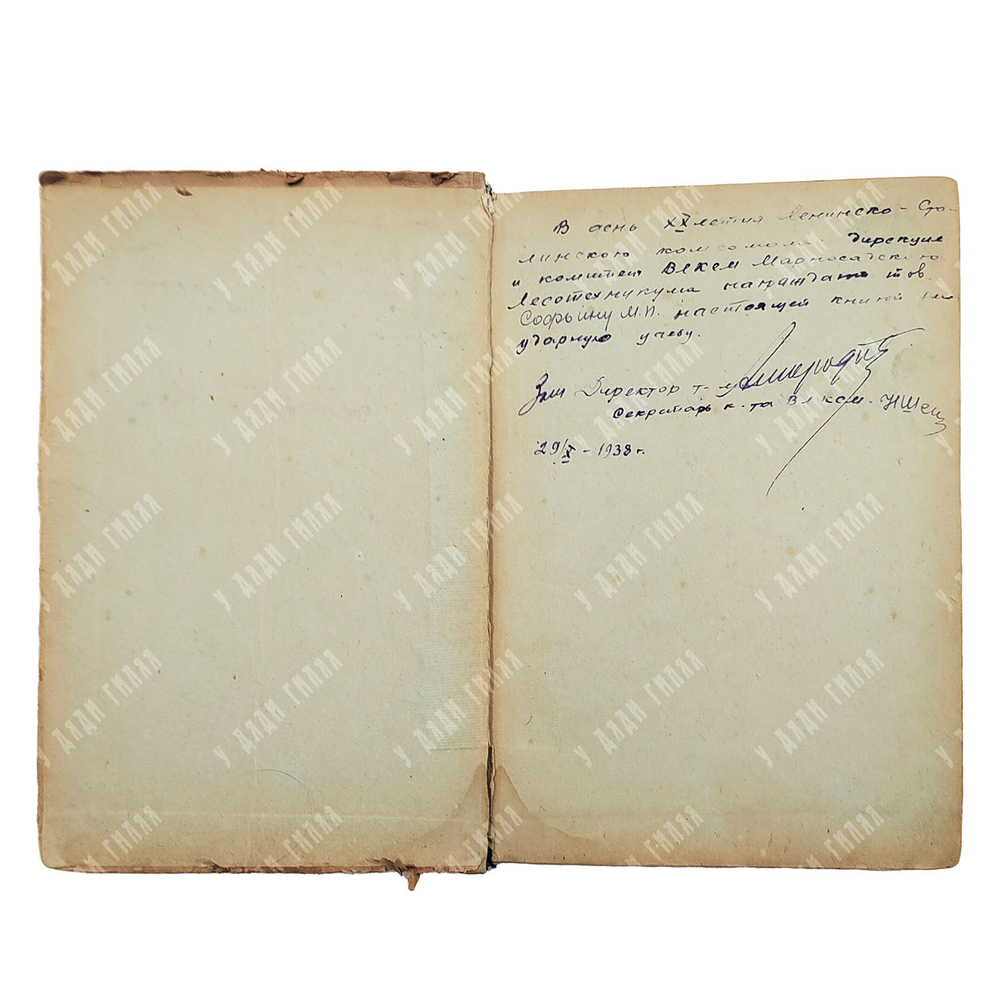 В день XXлетия Ленинско-Ста-
линского комсомола дирекция
и комитет ВЛКСМ Мариносадского
Лесотехникума награждают тов
Софьину М.П. настоящей книгой за
ударную учебу.
Зам Директор т-ма
Секретарь к-та ВЛКСМ.
29/X - 1938 г.
У ДЯДИ ГИЛЯЯ